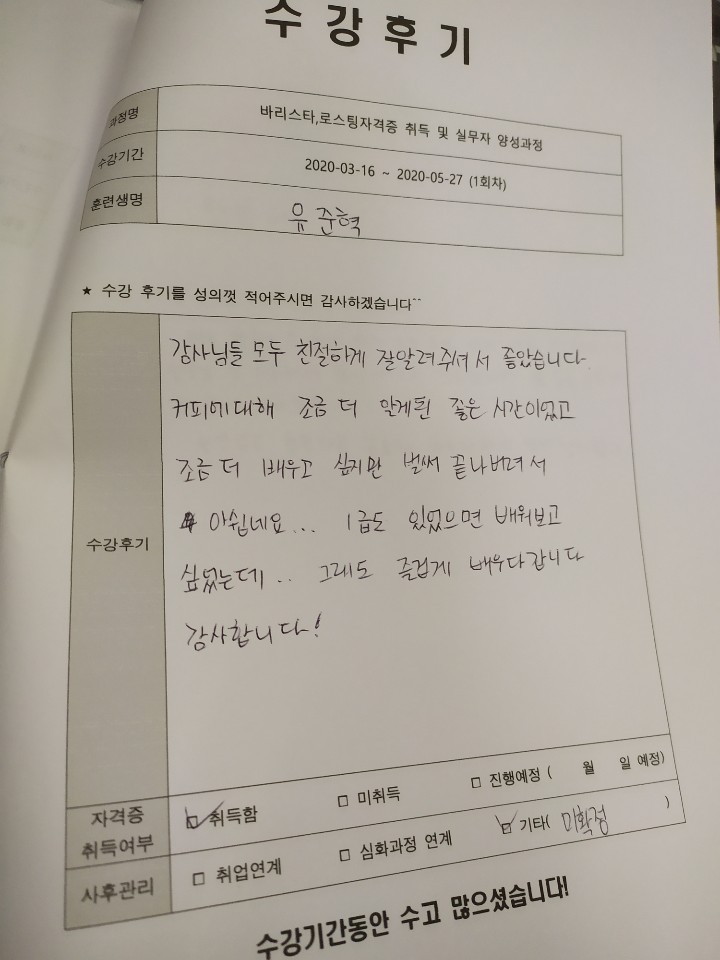 수강후기
과정명 바리스타,로스팅자격증 취득 및 실무자 양성과정
수강기간 2020-03-16 ~ 2020-05-27 (1회차)
훈련생명 유준혁
★ 수강 후기를 성의껏 적어주시면 감사하겠습니다~~
수강후기
강사님들 모두 친절하게 잘알려주셔서 좋았습니다.
커피에대해 조금 더 알게된 짧은 시간이었고
조금 더 배우고 싶지만 벌써 끝나버려서
아쉽네요... 1급도 있었으면 배워보고
싶었는데.. 그래도 즐겁게 배우다갑니다
감사합니다!
자격증 취득여부 ☑ 취득함 □ 미취득 □ 진행예정 ( 월 일 예정)
사후관리 □ 취업연계 □ 심화과정 연계 ☑ 기타( 미확정 )
수강기간동안 수고 많으셨습니다!